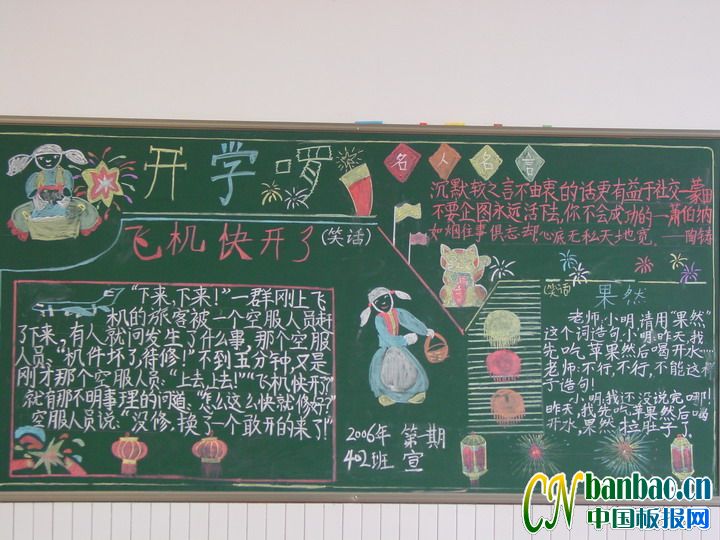 开学
名人名言
沉默较之言不由衷的话更有益于社交—蒙田
不要企图永远活下去,你不会成功的—萧伯纳
如烟往事俱忘却,心底无私天地宽。——陶铸
飞机快开了(笑话)
“下来,下来!”一群刚上飞
机的旅客被一个空服人员赶
了下来,有人就问发生了什么事,那个空服
人员:“机件坏了待修!”不到五分钟,又是
刚才那个空服人员:“上去,上去!”“飞机快开了”
就有那不明事理的问道:“怎么这么快就修好?”
空服人员说:“没修,换了一个敢开的来了!”
2006年 第期
402班 宣
(笑话) 果然
老师:小明,请用“果然”
这个词造句,小明:昨天,我
先吃苹果然后喝开水....
老师:不行,不行,不能这样
子造句!
小明:我还没说完哪!
昨天,我先吃苹果然后喝
开水,果然拉肚子了.
CNbanbao.cn
中国板报网